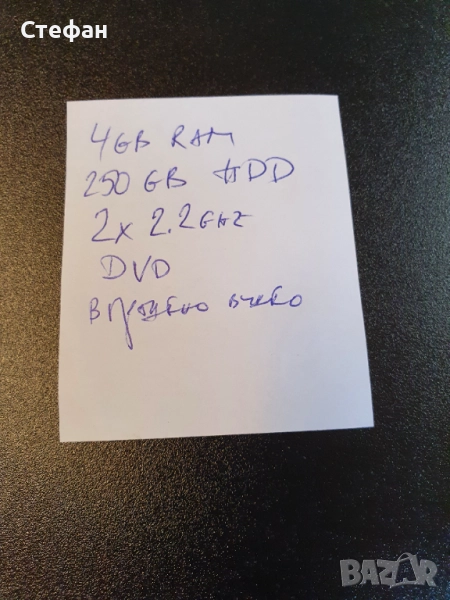 Стефан
4GB RAM
250 GB HDD
2x 2.2GHZ
DVD
BAZAR